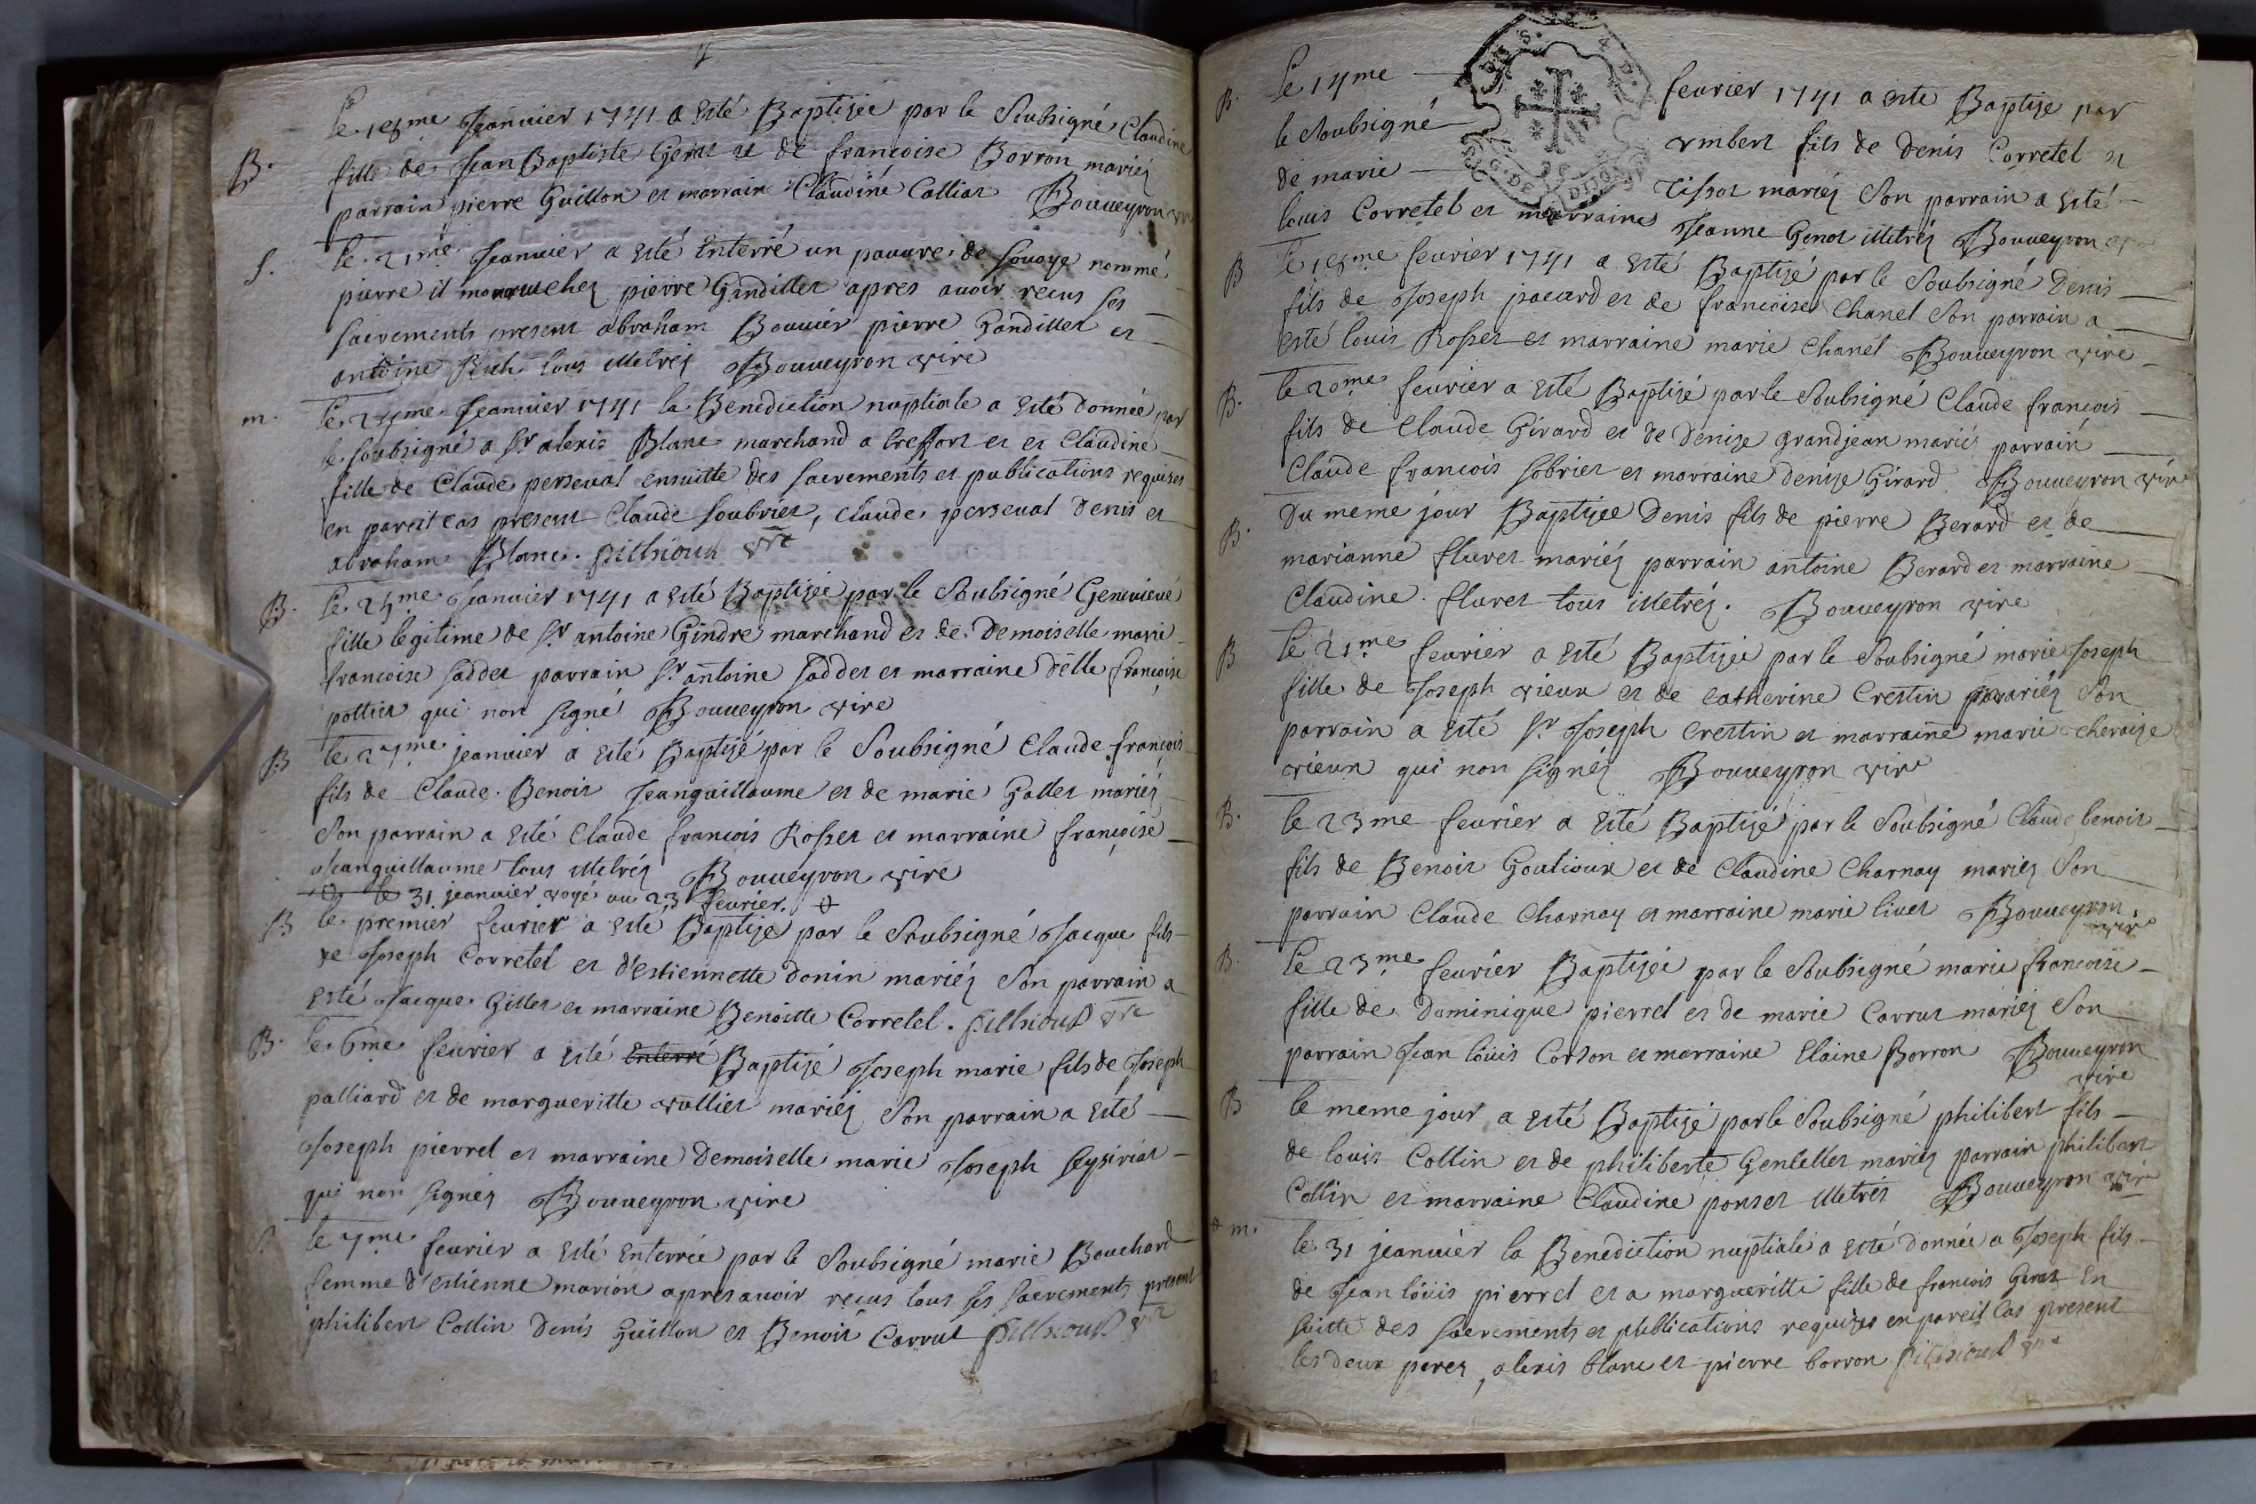 B. Le 18me Jeanvier 1741 a esté Baptizée par le Soubsigné Claudine
fille de Jean Baptiste Geras et de francoise Borron mariéz
parrain pierre Guillon et marraine Claudine Colliat Bouveyron vire
S. le 21me Jeanvier a esté Enterré un pauvre de Sovoye nommé
pierre il mourut chez pierre Gandillet apres avoir recus ses
sacrements present abraham Bouvier pierre Gandillet et
antoine Puth tous illetréz Bouveyron vire
m. le 24me Jeanvier 1741 la Benediction nuptiale a esté donnée par
le soubsigné a Sr alexis Blanc marchand a treffort et et Claudine
fille de Claude perseval ensuitte des sacrements et publications requizes
en pareil cas present Claude Soubrier, Claude perseval Denis et
abraham Blanc.
B. Le 25me Jeanvier 1741 a esté Baptizée par le Soubsigné Genevieve
fille legitime de Sr antoine Gindre marchand et de Demoiselle marie
francoise Saddet parrain Sr antoine Saddet et marraine Delle françoise
pottier qui non signé Bouveyron vire
B le 27me jeanvier a esté Baptizé par le Soubsigné Claude françois
fils de Claude Benoit Jeanguillaume et de marie Gallet mariéz
Son parrain a esté Claude francois Rosset et marraine françoise
Jeanguillaume tous illetréz Bouveyron vire
le 31 jeanvier voyé au 23 fevrier.
B le premier fevrier a esté Baptizé par le Soubsigné Jacque fils
de Joseph Corretel et d'estiennette donin mariéz Son parrain a
esté Jacque Gillet et marraine Benoitte Corretel.
B. le 6me fevrier a esté Enterré Baptizé Joseph marie fils de Joseph
palliard et de margueritte vullier mariéz Son parrain a esté
Joseph pierrel et marraine Demoiselle marie Joseph Seysiriat
qui non signéz Bouveyron vire
S. le 7me fevrier a esté Enterrée par le Soubsigné marie Bouchard
femme d'estienne marion apres avoir recus tous ses sacrements present
philibert Collin Denis Guillon et Benoit Carrut
B. Le 14me fevrier 1741 a esté Baptizé par
le Soubsigné vmbert fils de Denis Corretel et
de marie Tissot mariéz Son parrain a esté
louis Corretel et marraine Jeanne Genot illetréz Bouveyron vire
B le 18me fevrier 1741 a esté Baptizé par le Soubsigné Denis
fils de Joseph jacard et de francoise Chanel Son parrain a
esté louis Rosset et marraine marie Chanel Bouveyron vire
B. le 20me fevrier a esté Baptizé par le Soubsigné Claude francois
fils de Claude Girard et de Denize grandjean marié parrain
Claude francois Sobrier et marraine denize Girard Bouveyron vire
B. Du meme jour Baptizée Denis fils de pierre Berard et de
marianne fluret mariéz parrain antoine Berard et marraine
Claudine fluret tous illetréz. Bouveyron vire
B le 21me fevrier a esté Baptizée par le Soubsigné marie Joseph
fille de Joseph vieux et de catherine Crestin mariéz Son
parrain a esté Sr Joseph Crestin et marraine marie
vieux qui non signéz Bouveyron vire
B. le 23me fevrier a esté Baptizé par le Soubsigné Claude benoit
fils de Benoit Goutioux et de Claudine Charnay mariéz Son
parrain Claude Charnay et marraine marie livet Bouveyron
vire
B. le 23me fevrier Baptizée par le Soubsigné marie francoise
fille de Dominique pierrel et de marie Carrut mariéz Son
parrain Jean louis Corson et marraine Elaine Borron Bouveyron
vire
B le meme jour a esté Baptizé par le Soubsigné philibert fils
de louis Collin et de philiberte Genlellet mariéz parrain philibert
Collin et marraine Claudine ponset illetrés Bouveyron vire
m. le 31 jeanvier la Benediction nuptiale a esté donnée a Joseph fils
de Jean louis pierrel et a margueritte fille de francois Geras En
suitte des sacrements et publications requizes en pareil cas present
les deux perez, alexis blanc et pierre borron